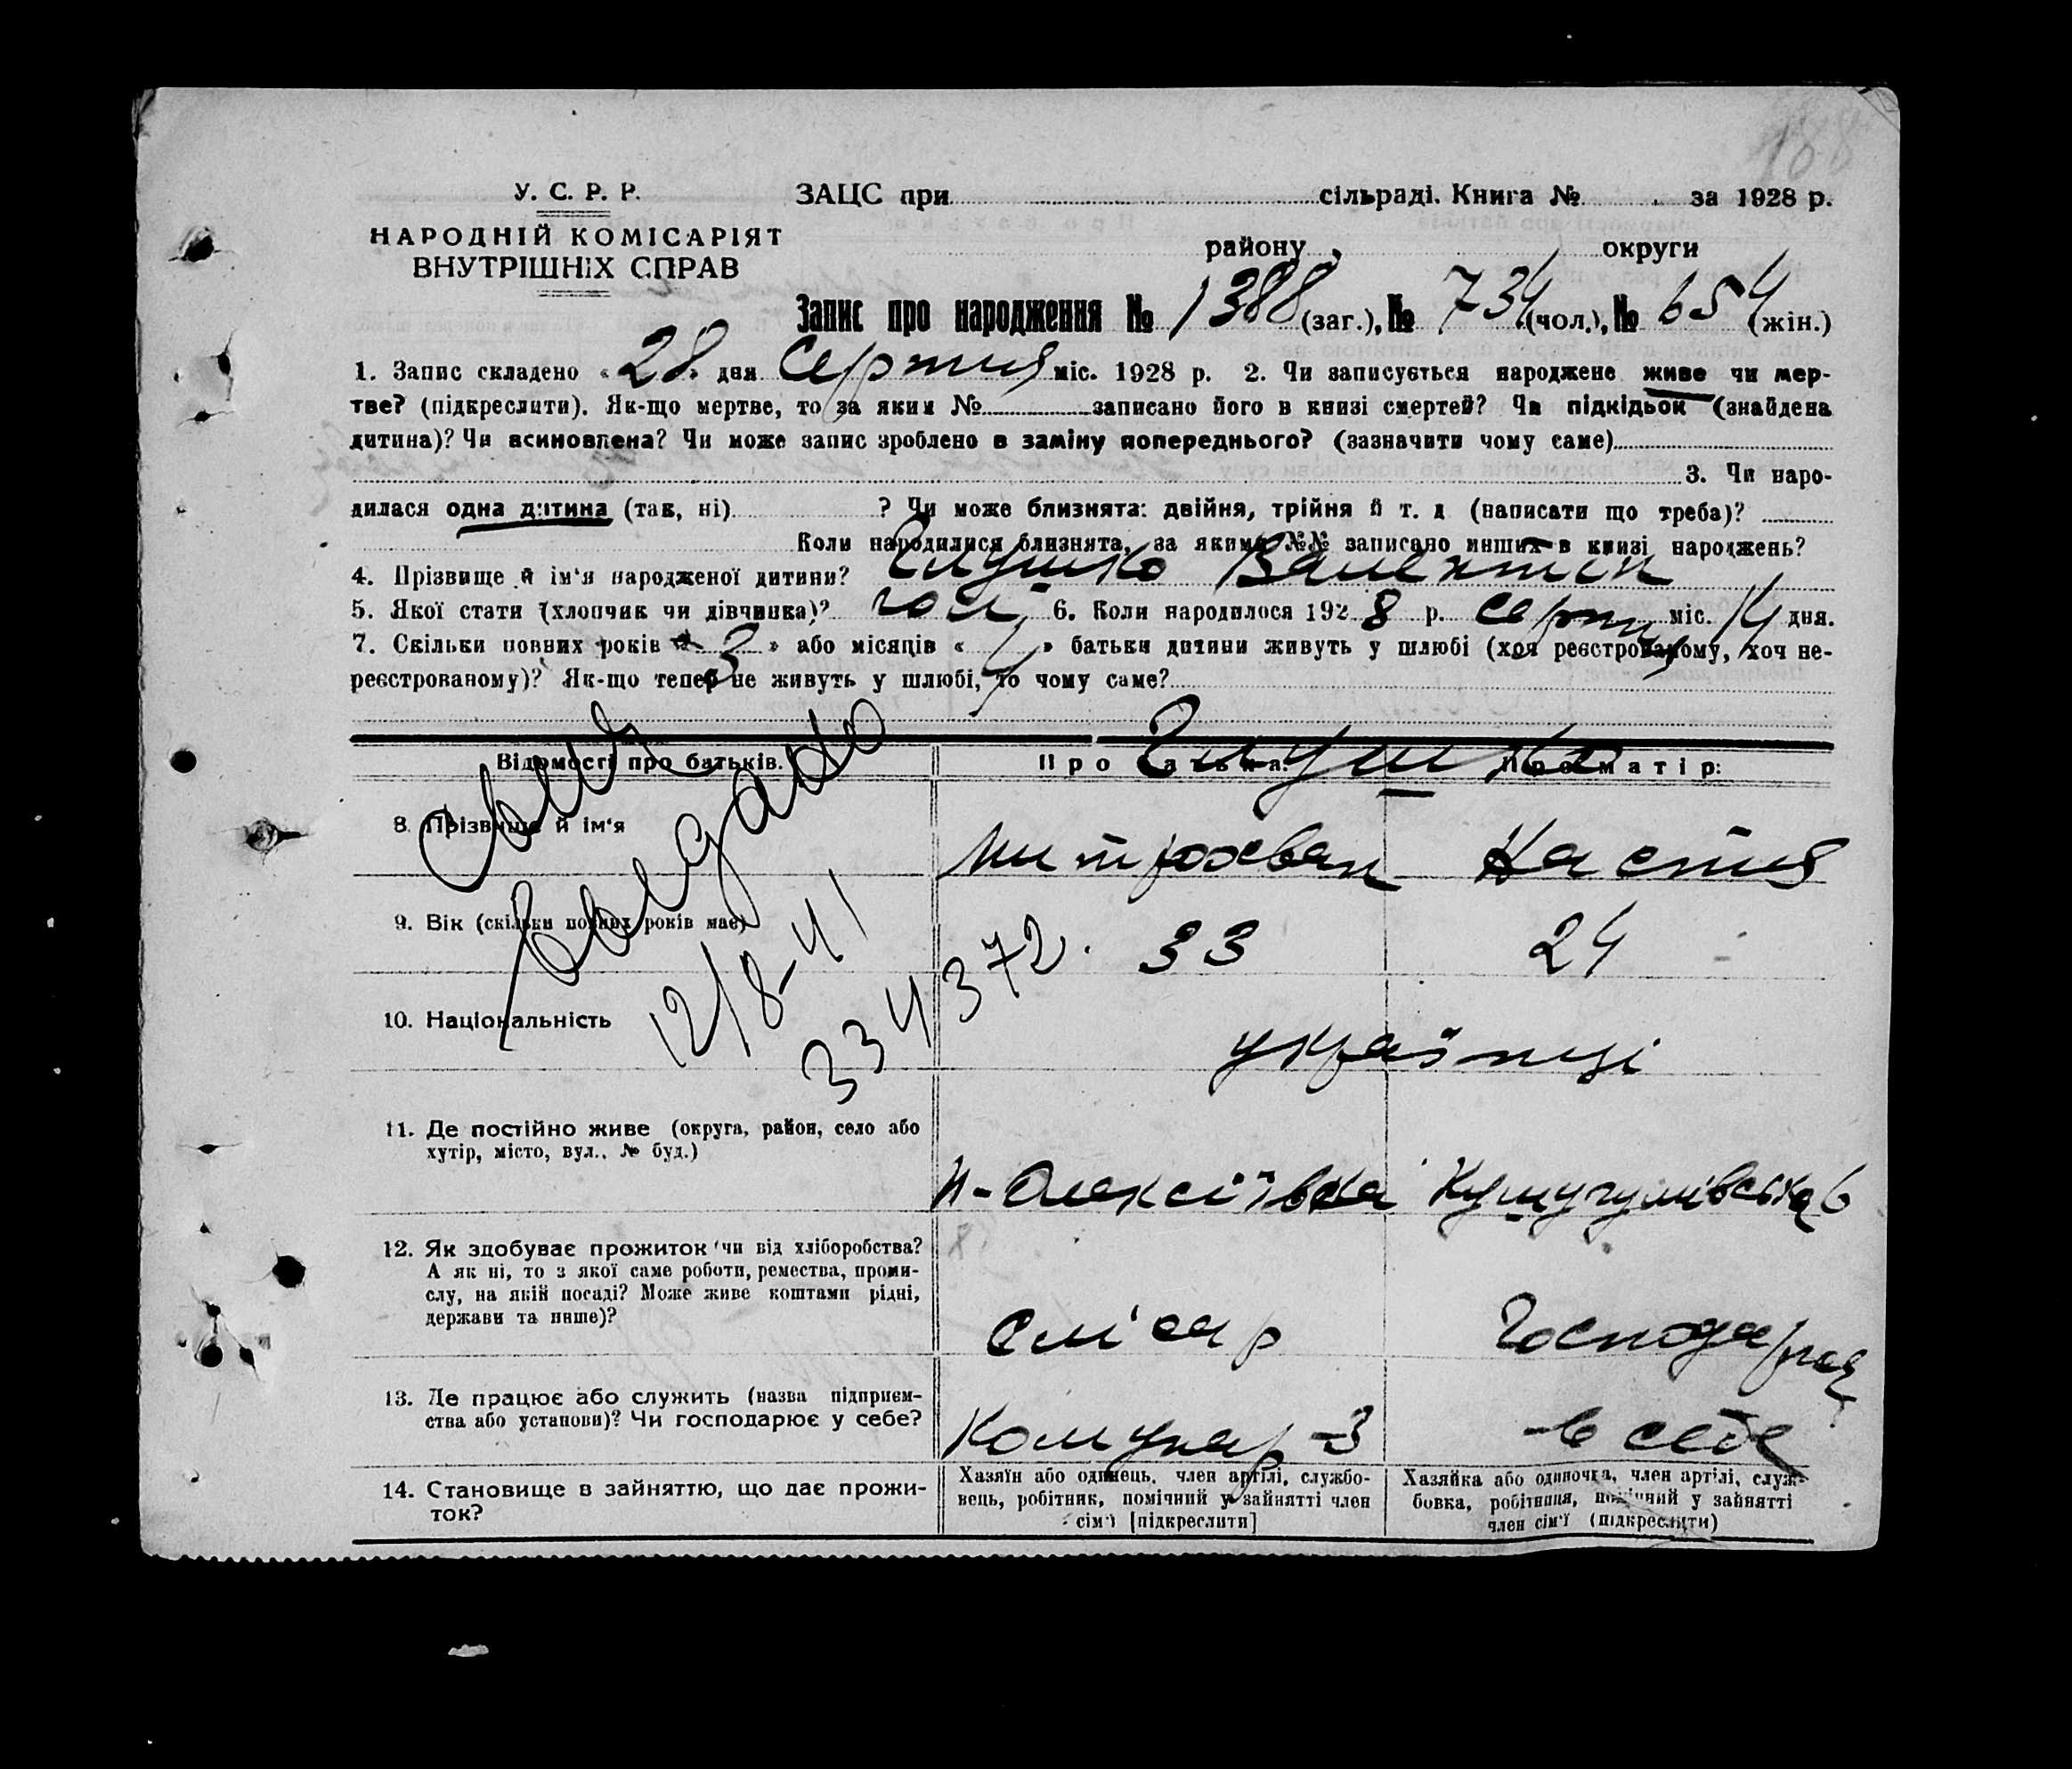 188
У. С. Р. Р. ЗАЦС при сільраді. Книга № за 1928 р.
НАРОДНІЙ КОМІСАРІЯТ
ВНУТРІШНІХ СПРАВ
району округи
Запис про народження № 1388 (заг.), № 734 (чол.), № 654 (жін.)
1. Запис складено «28» дня Серпня міс. 1928 р. 2. Чи записується народжене живе чи мер-
тве? (підкреслити). Як-що мертве, то за яким № записано його в книзі смертей? Чи підкідьок (знайдена
дитина)? Чи всиновлена? Чи може запис зроблено в заміну попереднього? (зазначити чому саме)
3. Чи наро-
дилася одна дитина (так, ні) ? Чи може близнята: двійня, трійня й т. д (написати що треба)?
Коли народилися близнята, за якими №№ записано инших в книзі народжень?
4. Прізвище й ім'я народженої дитини? Глушко Валентин
5. Якої стати (хлопчик чи дівчинка)? чол 6. Коли народилося 1928 р. серпня міс. 14 дня.
7. Скільки повних років «3» або місяців « » батьки дитини живуть у шлюбі (хоч реєстрованому, хоч не-
реєстрованому)? Як-що тепер не живуть у шлюбі, то чому саме?
Відомості про батьків. Про батька: Про матір:
Глушко
8. Прізвище й ім'я Митрохван Настя
Свид
выдано
12/8-41
334372.
9. Вік (скільки повних років має) 33 24
10. Національність українці
11. Де постійно живе (округа, район, село або
хутір, місто, вул., № буд.)
Н-Олексіївка Кушугумівська 6
12. Як здобуває прожиток (чи від хліборобства?
А як ні, то з якої саме роботи, ремества, проми-
слу, на якій посаді? Може живе коштами рідні,
держави та инше)?
Слісар Господарка
13. Де працює або служить (назва підприєм-
ства або установи)? Чи господарює у себе?
Комунар-З в себе
14. Становище в зайняттю, що дає прожи-
ток?
Хазяїн або одинець, член артілі, службо-
вець, робітник, помічний у зайнятті член
сім'ї [підкреслити]
Хазяйка або одиночка, член артілі, служ-
бовка, робітниця, помічний у зайнятті
член сім'ї (підкреслити)